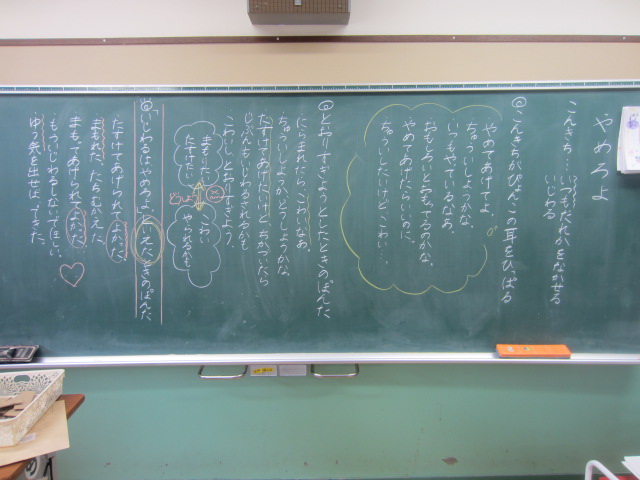 やめろよ
こんきち…いつもだれかをなかせる
いじわる
◎こんきちがぴょんこの耳をひっぱる
やめてあげてよ。
ちゅういしようかな。
いつもやているなあ。
おもしろいとおもてるのかな。
やめてあげたらいいのに。
ちゅういしたいけど、こわい…
◎とおりすぎようとしたときのぽんた
にらまれたら、こわいなあ。
ちゅういしようか、どうしようかな。
たすけてあげたいけど、ちかづいたら
じぶんもいじわるされるかも
こわい、とおりすぎよう。
まもりたい
たすけたい
どうしよう
こわい
やられるかも
◎「いじわるはやめろよ」といえたときのぽんた
たすけてあげられてよかった
まもれた、たちむかえた
まもってあげられてよかた。
・もういじわるしないでほしい。
・ゆう気を出せば、できた。